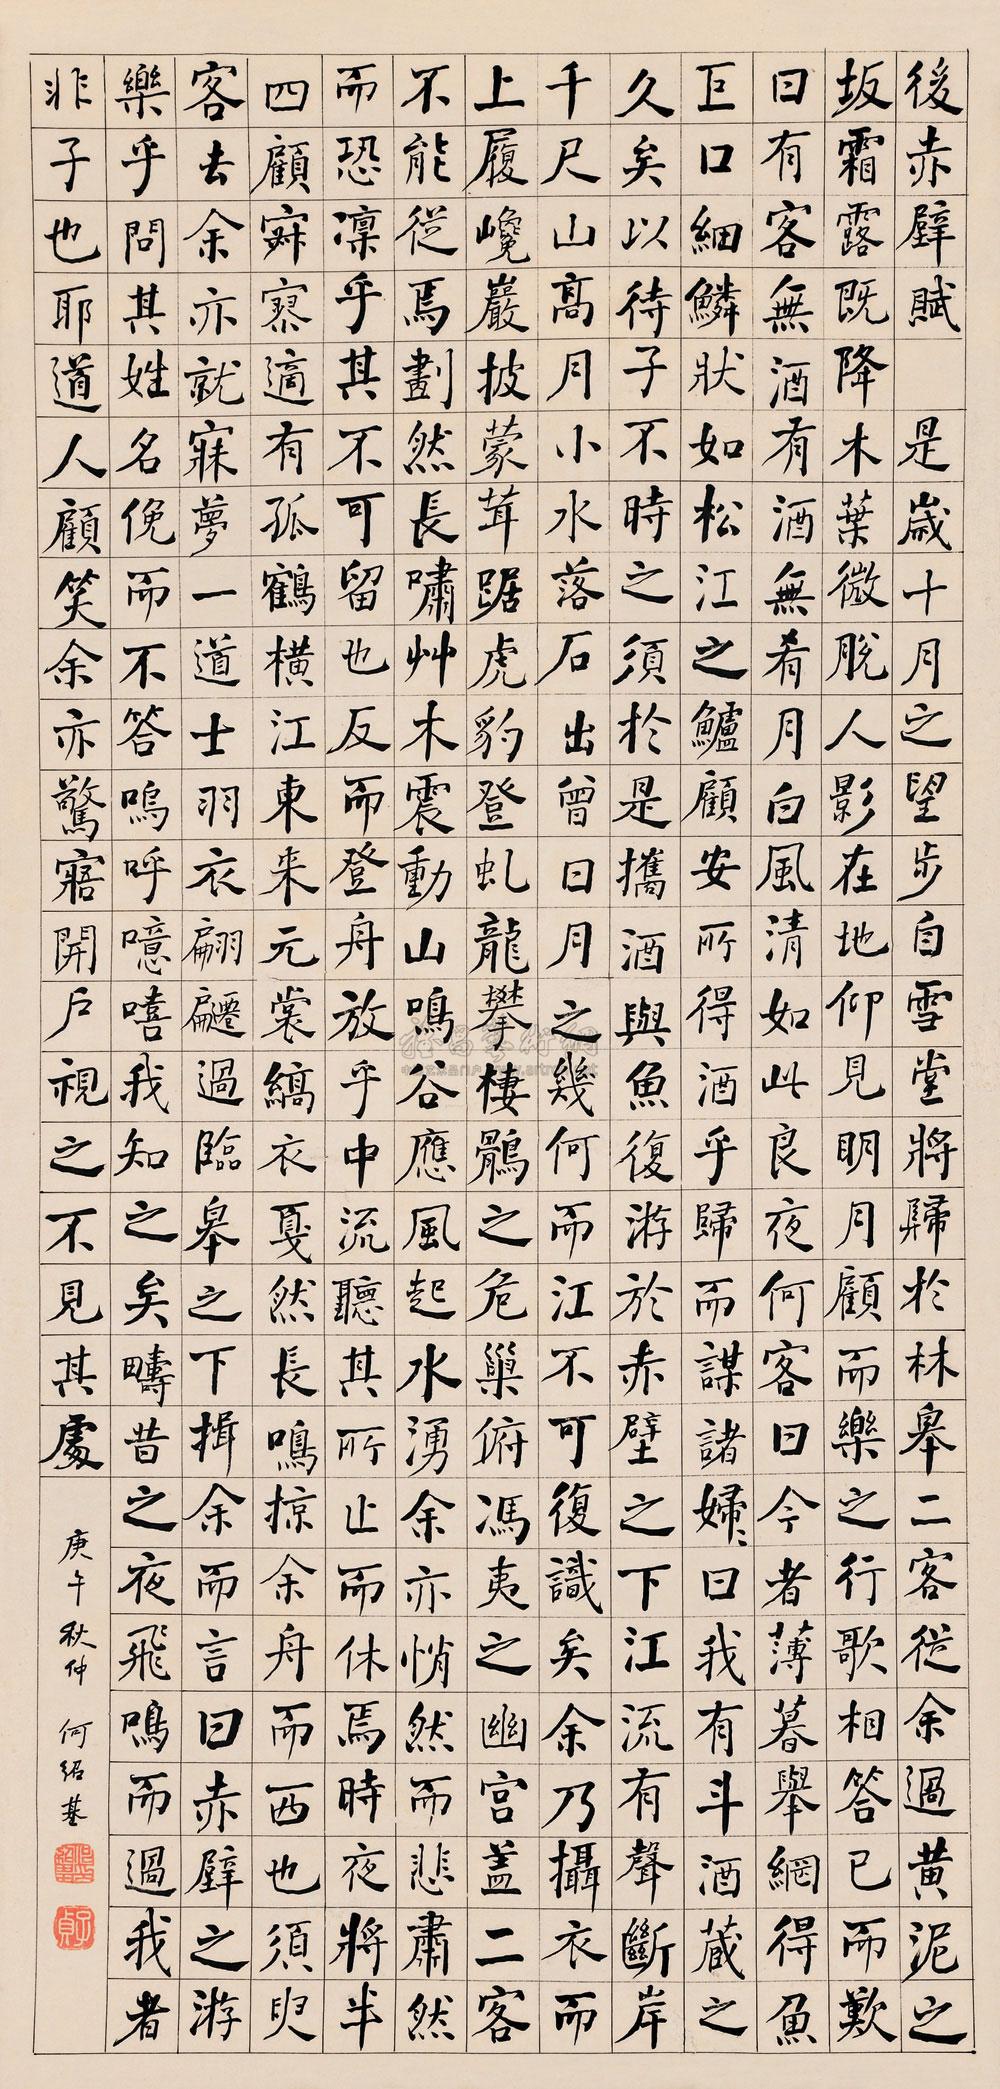 後赤壁賦 是歲十月之望步自雪堂將歸於林皋二客從余過黃泥之
坂霜露既降木葉微脫人影在地仰見明月顧而樂之行歌相答已而歎
曰有客無酒有酒無肴月白風清如此良夜何客曰今者薄暮舉網得魚
巨口細鱗狀如松江之鱸顧安所得酒乎歸而謀諸婦婦曰我有斗酒藏之
久矣以待子不時之須於是攜酒與魚復游於赤壁之下江流有聲斷岸
千尺山高月小水落石出曾日月之幾何而江不可復識矣余乃攝衣而
上履巉巖披蒙茸踞虎豹登虬龍攀棲鶻之危巢俯馮夷之幽宮蓋二客
不能從焉劃然長嘯艸木震動山鳴谷應風起水湧余亦悄然而悲肅然
而恐凜乎其不可留也反而登舟放乎中流聽其所止而休焉時夜將半
四顧寂寥適有孤鶴橫江東來元裳縞衣戛然長鳴掠余舟而西也須臾
客去余亦就寐夢一道士羽衣翩躚過臨皋之下揖余而言曰赤壁之游
樂乎問其姓名俛而不答嗚呼噫嘻我知之矣疇昔之夜飛鳴而過我者
非子也耶道人顧笑余亦驚寤開戶視之不見其處
庚午秋仲 何紹基